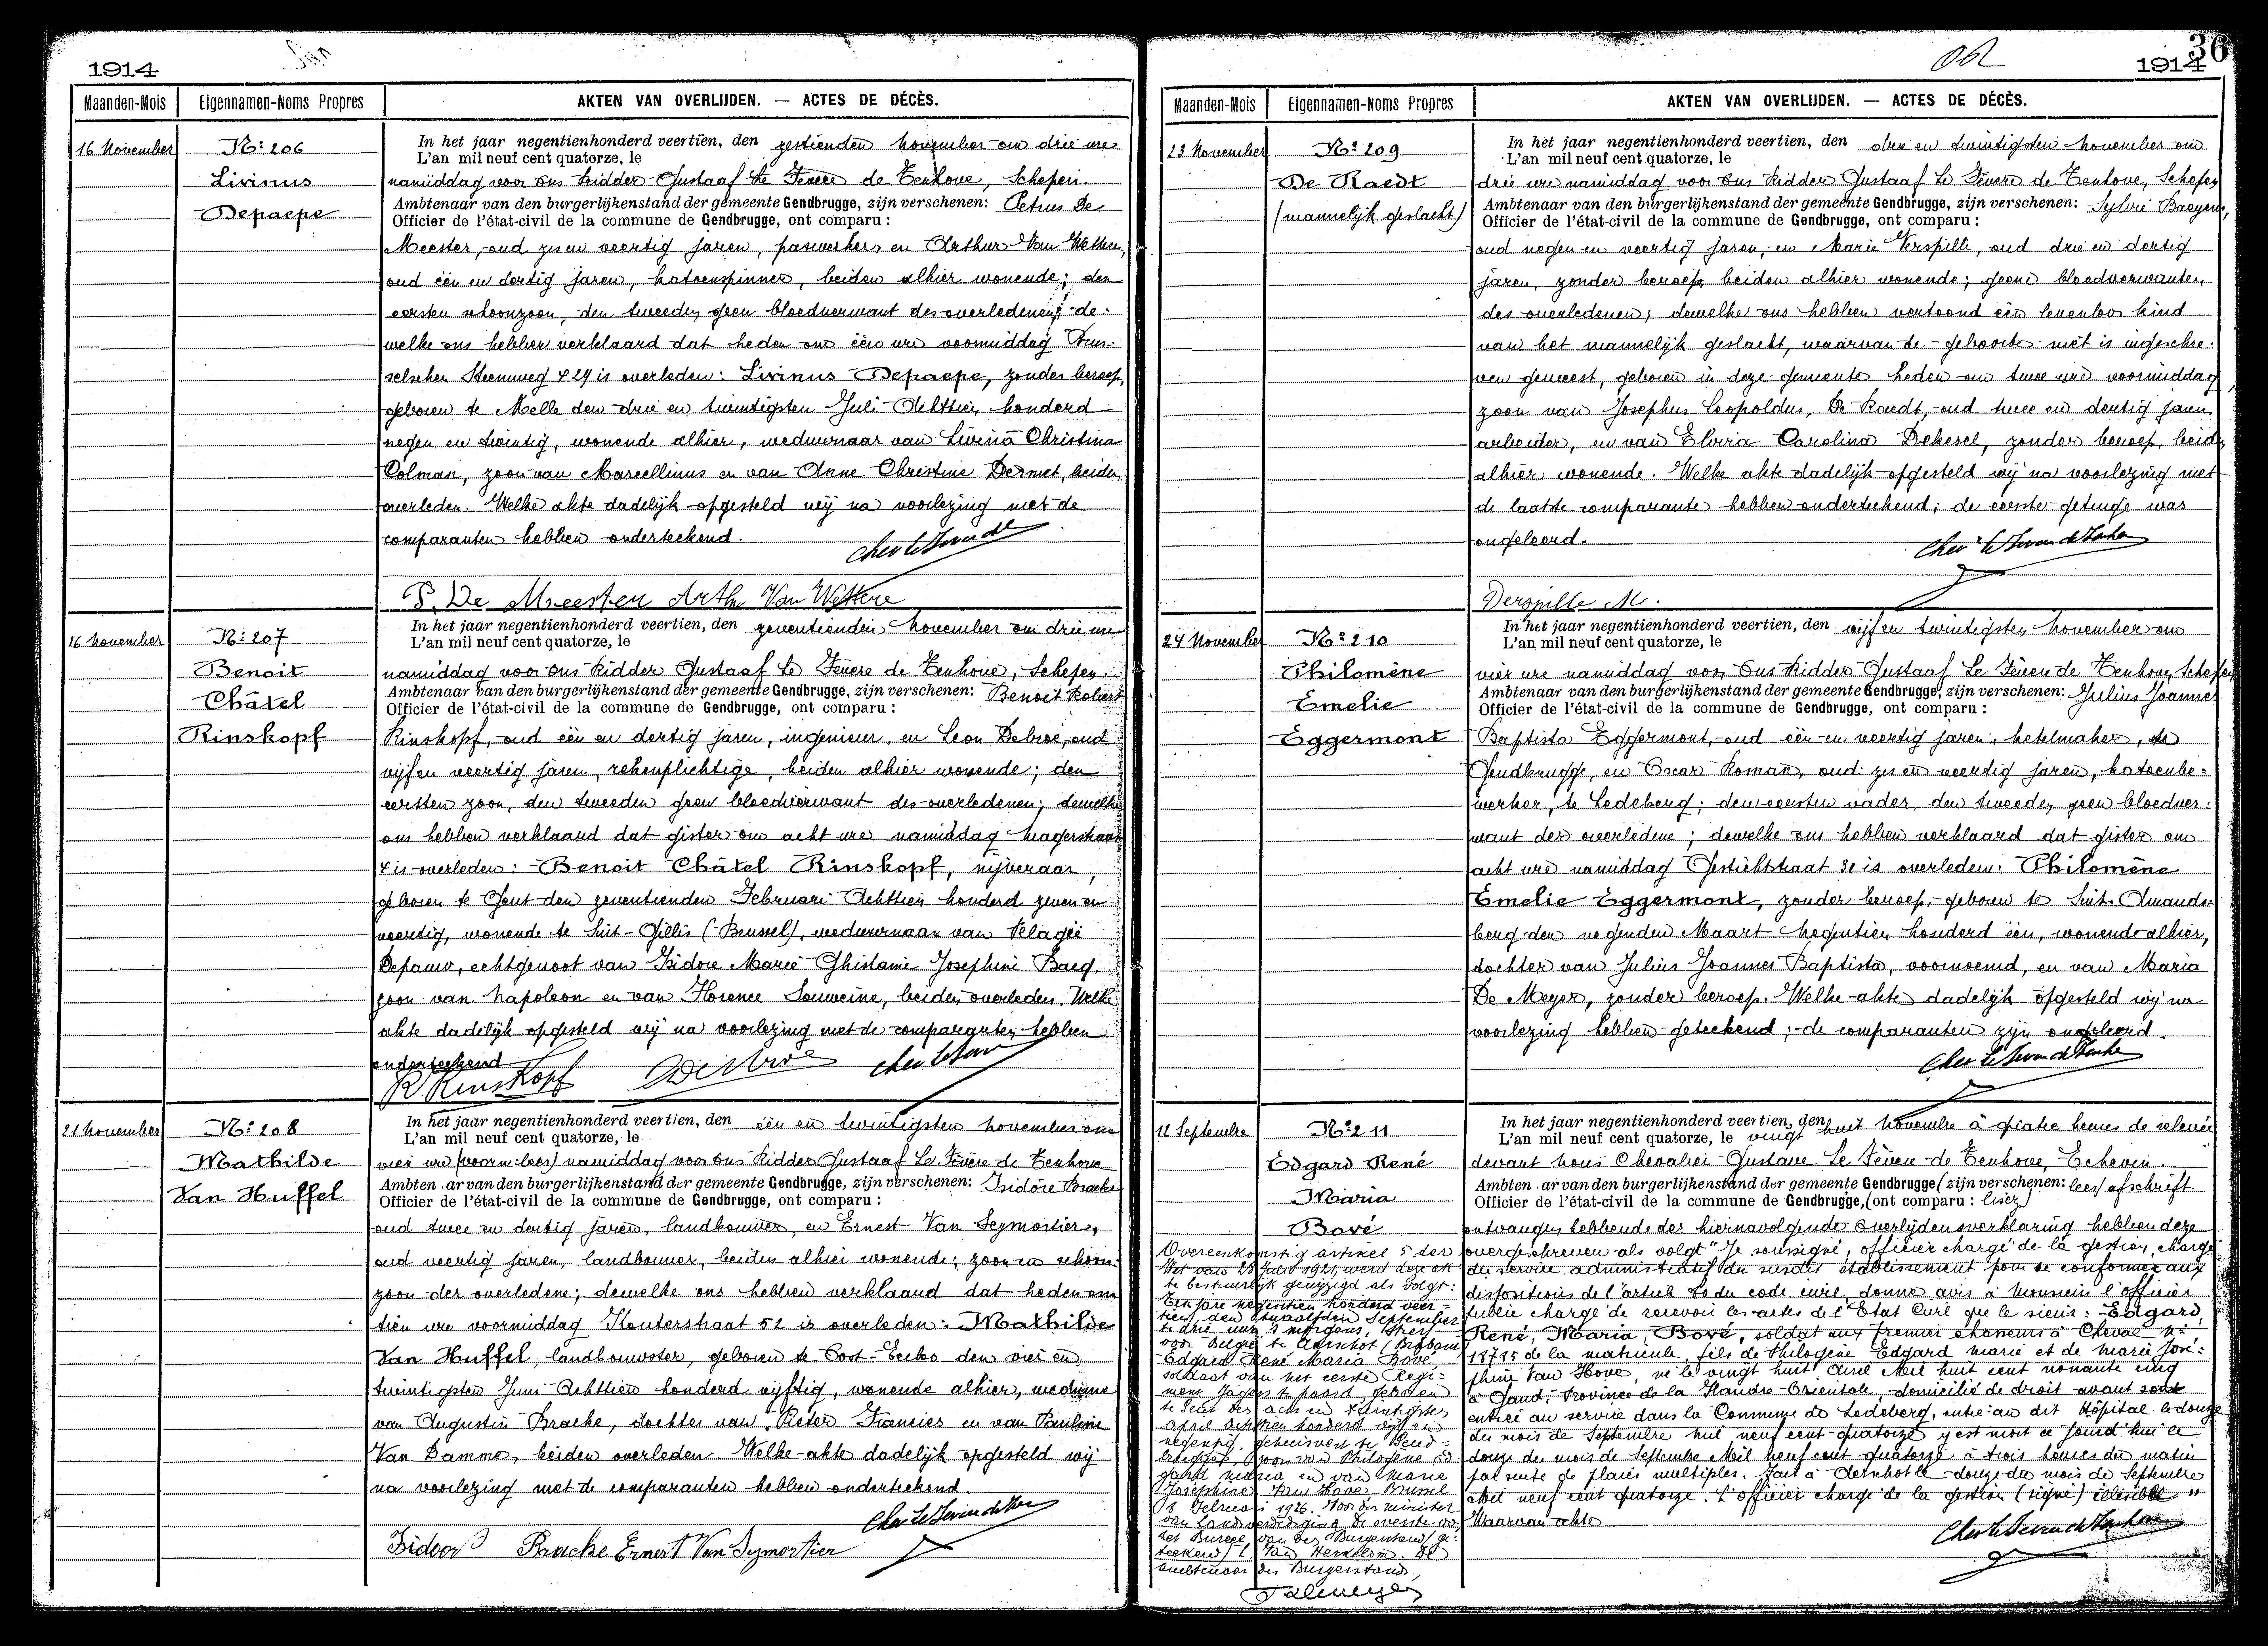 1914
Maanden-Mois Eigennamen-Noms Propres AKTEN VAN OVERLIJDEN. — ACTES DE DÉCÈS.
16 November
Nº 206
Livinus
Depaepe
In het jaar negentienhonderd veertien, den zestienden november om drie ure
L'an mil neuf cent quatorze, le
namiddag voor ons Ridder Gustaaf Le Fevere de Tenhove, Schepen.
Ambtenaar van den burgerlijkenstand der gemeente Gendbrugge, zijn verschenen: Petrus De
Officier de l'état-civil de la commune de Gendbrugge, ont comparu :
Meester, oud zes en veertig jaren, paswerker, en Arthur Van Wettere,
oud één en dertig jaren, katoenspinner, beiden alhier wonende; den
eersten schoonzoon, den tweeden geen bloedverwant des overledenen; de-
welke ons hebben verklaard dat heden om één ure voormiddag Brus-
selschen Steenweg 429 is overleden: Livinus Depaepe, zonder beroep,
geboren te Melle den drie en twintigsten Juli Achttien honderd
negen en twintig, wonende alhier, weduwnaar van Livina Christina
Colman, zoon van Marcellinus en van Anne Christine Desmet, beiden
overleden. Welke akte dadelijk opgesteld wij na voorlezing met de
comparanten hebben onderteekend.
P. De Meester Arth Van Wettere
16 November
Nº 207
Benoit
Châtel
Rinskopf
In het jaar negentienhonderd veertien, den zeventienden november om drie ure
L'an mil neuf cent quatorze, le
namiddag voor ons Ridder Gustaaf Le Fevere de Tenhove, Schepen.
Ambtenaar van den burgerlijkenstand der gemeente Gendbrugge, zijn verschenen: Benoit Robert
Officier de l'état-civil de la commune de Gendbrugge, ont comparu :
Rinskopf, oud één en dertig jaren, ingenieur, en Leon Debroe, oud
vijf en veertig jaren, rekenplichtige, beiden alhier wonende; den
eersten zoon, den tweeden geen bloedverwant des overledenen; dewelke
ons hebben verklaard dat gister om acht ure namiddag
4 is overleden: Benoit Châtel Rinskopf, nijveraar,
geboren te Gent den zeventienden Februari Achttien honderd zeven en
veertig, wonende te Sint-Gillis (Brussel), weduwnaar van Pelagie
Depauw, echtgenoot van Isidore Marie Ghislaine Josephine Baeg,
zoon van Napoleon en van Florence Souweine, beiden overleden. Welke
akte dadelijk opgesteld wij na voorlezing met de comparanten hebben
onderteekend
R Rinskopf
21 November
Nº 208
Mathilde
Van Huffel
In het jaar negentienhonderd veertien, den één en twintigsten november om
L'an mil neuf cent quatorze, le
vier ure (voorm: lees) namiddag voor ons Ridder Gustaaf Le Fevere de Tenhove
Ambtenaar van den burgerlijkenstand der gemeente Gendbrugge, zijn verschenen: Isidore Bracke
Officier de l'état-civil de la commune de Gendbrugge, ont comparu :
oud twee en dertig jaren, landbouwer, en Ernest Van Seymortier,
oud veertig jaren, landbouwer, beiden alhier wonende; zoon en schoon-
zoon der overledene; dewelke ons hebben verklaard dat heden om
tien ure voormiddag Kouterstraat 52 is overleden: Mathilde
Van Huffel, landbouwster, geboren te Oost-Eecloo den vier en
twintigsten Juni Achttien honderd vijftig, wonende alhier, weduwe
van Augustin Bracke, dochter van Pieter Francies en van Pauline
Van Damme, beiden overleden. Welke akte dadelijk opgesteld wij
na voorlezing met de comparanten hebben onderteekend.
Isidoor Bracke Ernest Van Seymortier
36
1914
Maanden-Mois Eigennamen-Noms Propres AKTEN VAN OVERLIJDEN. — ACTES DE DÉCÈS.
23 November
Nº 209
De Raedt
(mannelijk geslacht)
In het jaar negentienhonderd veertien, den drie en twintigsten november om
L'an mil neuf cent quatorze, le
drie ure namiddag voor ons Ridder Gustaaf Le Fevere de Tenhove, Schepen
Ambtenaar van den burgerlijkenstand der gemeente Gendbrugge, zijn verschenen: Sylvie Baeyens,
Officier de l'état-civil de la commune de Gendbrugge, ont comparu :
oud negen en veertig jaren, en Marie Verspille, oud drie en dertig
jaren, zonder beroep, beiden alhier wonende; geene bloedverwanten
des overledenen; dewelke ons hebben vertoond één levenloos kind
van het mannelijk geslacht, waarvan de geboorte niet is ingeschre-
ven geweest, geboren in deze gemeente heden om twee ure voormiddag
zoon van Josephus Leopoldus De Raedt, oud twee en dertig jaren,
arbeider, en van Elvira Carolina Dekesel, zonder beroep, beide
alhier wonende. Welke akte dadelijk opgesteld wij na voorlezing met
de laatste comparante hebben onderteekend; de eerste getuige was
ongeleerd.
24 November
Nº 210
Philomène
Emelie
Eggermont
In het jaar negentienhonderd veertien, den vijf en twintigsten november om
L'an mil neuf cent quatorze, le
vier ure namiddag voor Ons Ridder Gustaaf Le Fevere de Tenhove, Schepen
Ambtenaar van den burgerlijkenstand der gemeente Gendbrugge, zijn verschenen: Julius Joannes
Officier de l'état-civil de la commune de Gendbrugge, ont comparu :
Baptista Eggermont, oud één en veertig jaren, ketelmaker, te
Gendbrugge, en Oscar Roman, oud zes en veertig jaren, katoenbe-
werker, te Ledeberg; den eersten vader, den tweeden geen bloedver-
want der overledene; dewelke ons hebben verklaard dat gister om
acht ure namiddag Gestichtstraat 30 is overleden: Philomène
Emelie Eggermont, zonder beroep, geboren te Sint-Amands-
berg den negenden Maart Negentien honderd één, wonende alhier,
dochter van Julius Joannes Baptista, voornoemd, en van Maria
De Meyer, zonder beroep. Welke akte dadelijk opgesteld wij na
voorlezing hebben geteekend; de comparanten zijn ongeleerd.
12 Septembre
Nº 211
Edgard René
Maria
Bové
In het jaar negentienhonderd veertien, den
L'an mil neuf cent quatorze, le vingt huit Novembre à quatre heures de relevée
devant nous Chevalier Gustave Le Fèvere de Tenhove, Echevin.
Ambtenaar van den burgerlijkenstand der gemeente Gendbrugge (zijn verschenen: lees) afschrift
Officier de l'état-civil de la commune de Gendbrugge, (ont comparu : lisez)
ontvangen hebbende der hiernavolgende overlijdensverklaring hebben deze
overgeschreven als volgt "Je soussigné, officier chargé de la gestion, chargé
du service administratif du susdit établissement pour se conformer aux
dispositions de l'article 80 du code civil, donne avis à Monsieur l'officier
public chargé de recevoir les actes de l'Etat Civil que le sieur: Edgard,
René, Maria, Bové, soldat aux premier chasseurs à Cheval Nº
18715 de la matricule, fils de Philogène Edgard marie et de marie José-
phine Van Hove, né le vingt huit Avril Mil huit cent nonante cinq
à Gand, Province de la Flandre Orientale, domicilié de droit avant son
entrée au service dans la Commune de Ledeberg, entré au dit Hôpital le douze
du mois de Septembre mil neuf cent quatorze y est mort ce jourd'hui le
douze du mois de Septembre Mil neuf cent quatorze à trois heures du matin
par suite de plaies multiples. Fait à Aerschot le douze du mois de Septembre
Mil neuf cent quatorze. L'officier chargé de la gestion (signé) illisible"
Waarvan akte
Overeenkomstig artikel 5 der
Wet van 28 Juli 1921, werd deze akte
te bestuurlijk gewijzigd als volgt:
Ten jare negentien honderd veer-
tien, den twaalfden September
te drie uur 's morgens, stierf
voor België te Aerschot (Brabant)
Edgard René Maria Bové
soldaat van het eerste Regi-
ment Jagers te paard, geboren
te Gent den acht en twintigsten
April Achttien honderd vijf en
negentig, gehuisvest te Gend-
brugge, zoon van Philogène Ed-
gard Maria en van Marie
Josephine Van Hove. Brussel
Februari 1926. Voor den Minister
van Landsverdediging De overste van
het Bureel van den Burgerstand (ge-
teekend) De
ambtenaar des Burgerstands,